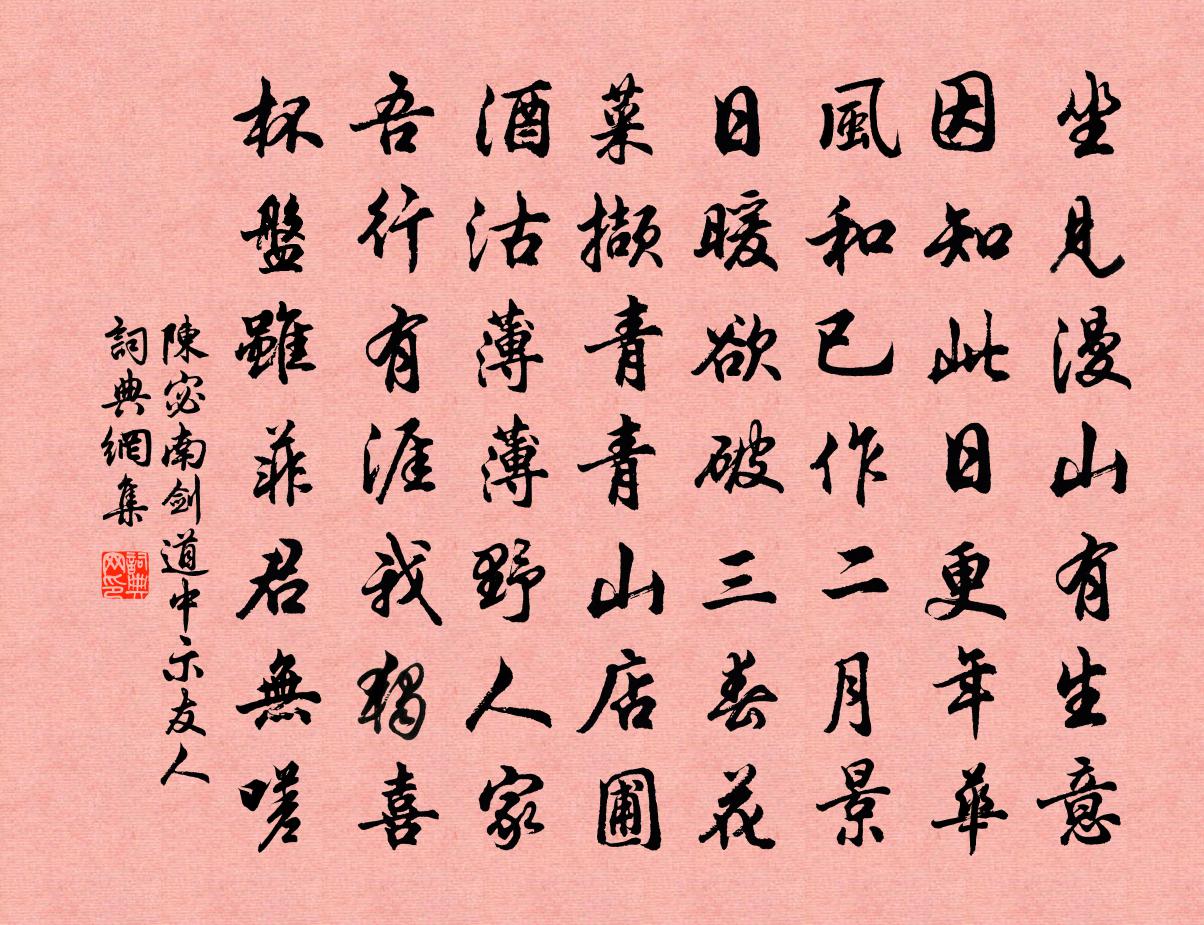 坐見漫山有生意
因知此日更年華
風和已作二月景
日暖欲破三春花
菜擷青青山店圃
酒沽薄薄野人家
吾行有涯我獨喜
杯盤雖菲君無嗟
陳宓南劍道中示友人
詞典網集
詞典網印